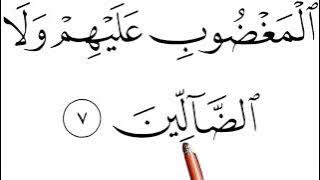 ٱلْمَغْضُوبِ عَلَيْهِمْ وَلَا
ٱلضَّآلِّينَ ٧